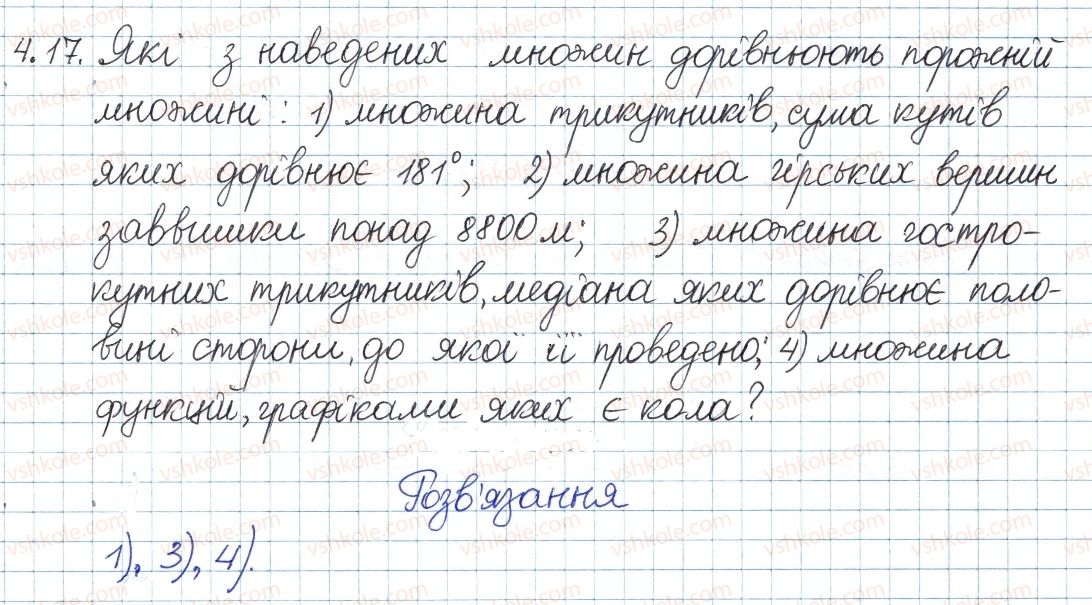 4.17. Які з наведених множин дорівнюють порожній
множині: 1) множина трикутників, сума кутів
яких дорівнює 181°; 2) множина гірських вершин
заввишки понад 8800 м; 3) множина гостро-
кутних трикутників, медіана яких дорівнює поло-
вині сторони, до якої її проведено; 4) множина
функцій, графіками яких є кола?
Розв'язання
1), 3), 4).